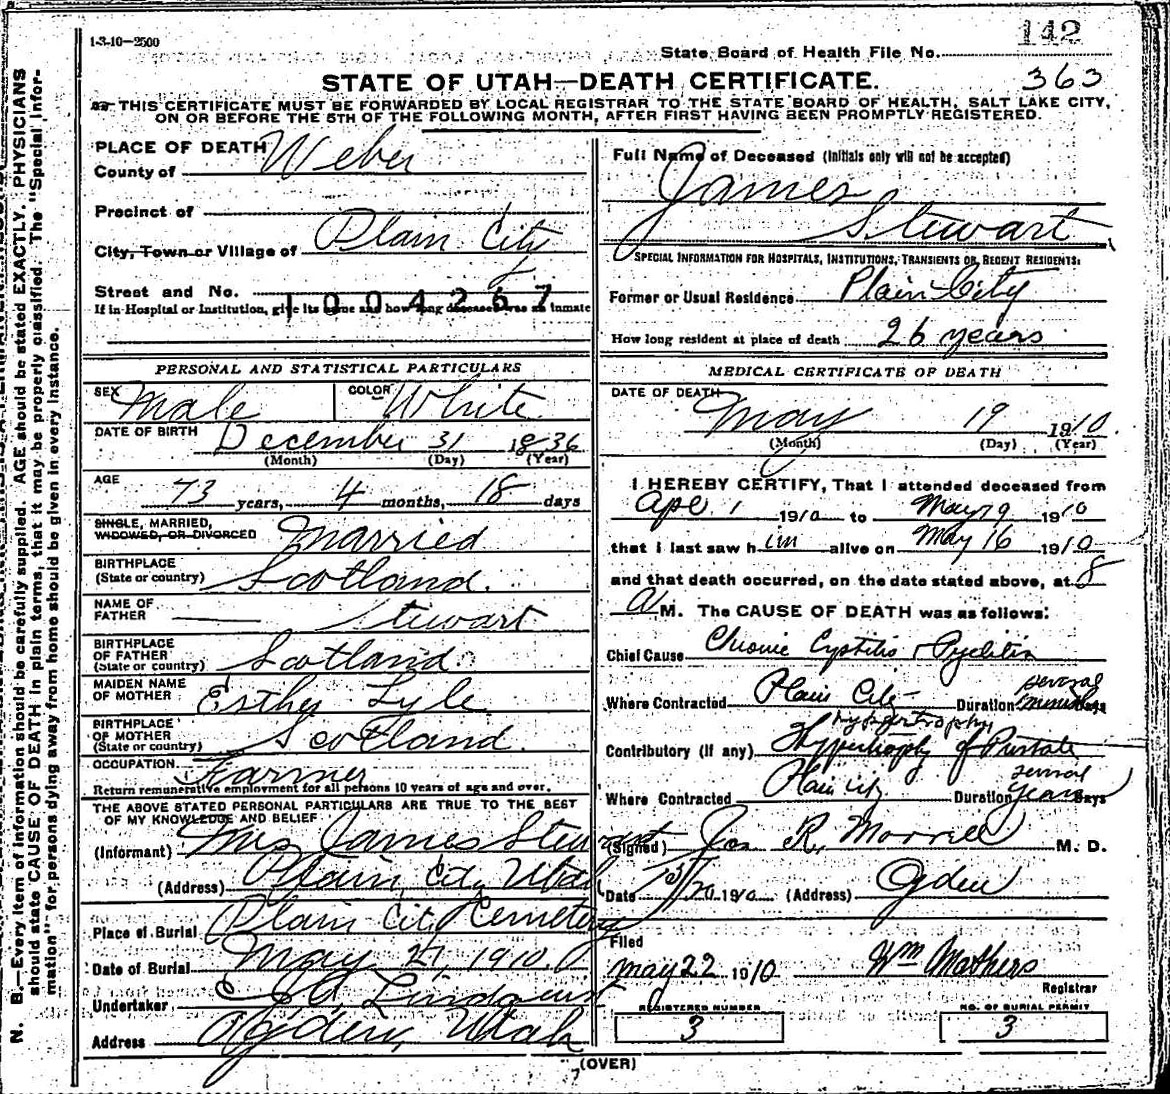 1-3-10—2500
142
State Board of Health File No.
363
STATE OF UTAH—DEATH CERTIFICATE.
THIS CERTIFICATE MUST BE FORWARDED BY LOCAL REGISTRAR TO THE STATE BOARD OF HEALTH, SALT LAKE CITY,
ON OR BEFORE THE 5TH OF THE FOLLOWING MONTH, AFTER FIRST HAVING BEEN PROMPTLY REGISTERED.
PLACE OF DEATH
County of Weber
Precinct of
City, Town or Village of Plain City
Street and No.
1004267
If in Hospital or Institution, give its name and how long deceased was an inmate
PERSONAL AND STATISTICAL PARTICULARS
SEX Male COLOR White
DATE OF BIRTH December 31 1836
(Month) (Day) (Year)
AGE 73 years, 4 months, 18 days
SINGLE, MARRIED,
WIDOWED, OR DIVORCED Married
BIRTHPLACE
(State or country) Scotland.
NAME OF
FATHER — Stewart
BIRTHPLACE
OF FATHER
(State or country) Scotland.
MAIDEN NAME
OF MOTHER Esther Lyle
BIRTHPLACE
OF MOTHER
(State or country) Scotland.
OCCUPATION Farmer
Return remunerative employment for all persons 10 years of age and over.
THE ABOVE STATED PERSONAL PARTICULARS ARE TRUE TO THE BEST
OF MY KNOWLEDGE AND BELIEF
(Informant) Mrs James Stewart
(Address) Plain City Utah
Place of Burial Plain City Cemetery
Date of Burial May 21 1910.
Undertaker Lindquist
Address Ogden, Utah
Full Name of Deceased (Initials only will not be accepted)
James
Stewart
SPECIAL INFORMATION FOR HOSPITALS, INSTITUTIONS, TRANSIENTS OR RECENT RESIDENTS:
Former or Usual Residence Plain City
How long resident at place of death 26 years
MEDICAL CERTIFICATE OF DEATH
DATE OF DEATH May 19 1910.
(Month) (Day) (Year)
I HEREBY CERTIFY, That I attended deceased from
Apr. 1 1910 to May 19 1910
that I last saw him alive on May 16 1910
and that death occurred, on the date stated above, at 8
A M. The CAUSE OF DEATH was as follows:
Chief Cause Chronic Cystitis & Pyelitis
Where Contracted Plain City Duration several months Days
hypertrophy
Contributory (if any) Hypertrophy of Prostate
Where Contracted Plain City Duration several years Days
(Signed) Jos R. Morrell M. D.
Date 5/20 1910 (Address) Ogden
Filed
May 22 1910 Wm Mathers
Registrar
REGISTERED NUMBER
3
NO. OF BURIAL PERMIT
3
(OVER)
N. B.—Every item of information should be carefully supplied. AGE should be stated EXACTLY. PHYSICIANS
should state CAUSE OF DEATH in plain terms, that it may be properly classified. The "Special Infor-
mation" for persons dying away from home should be given in every instance.